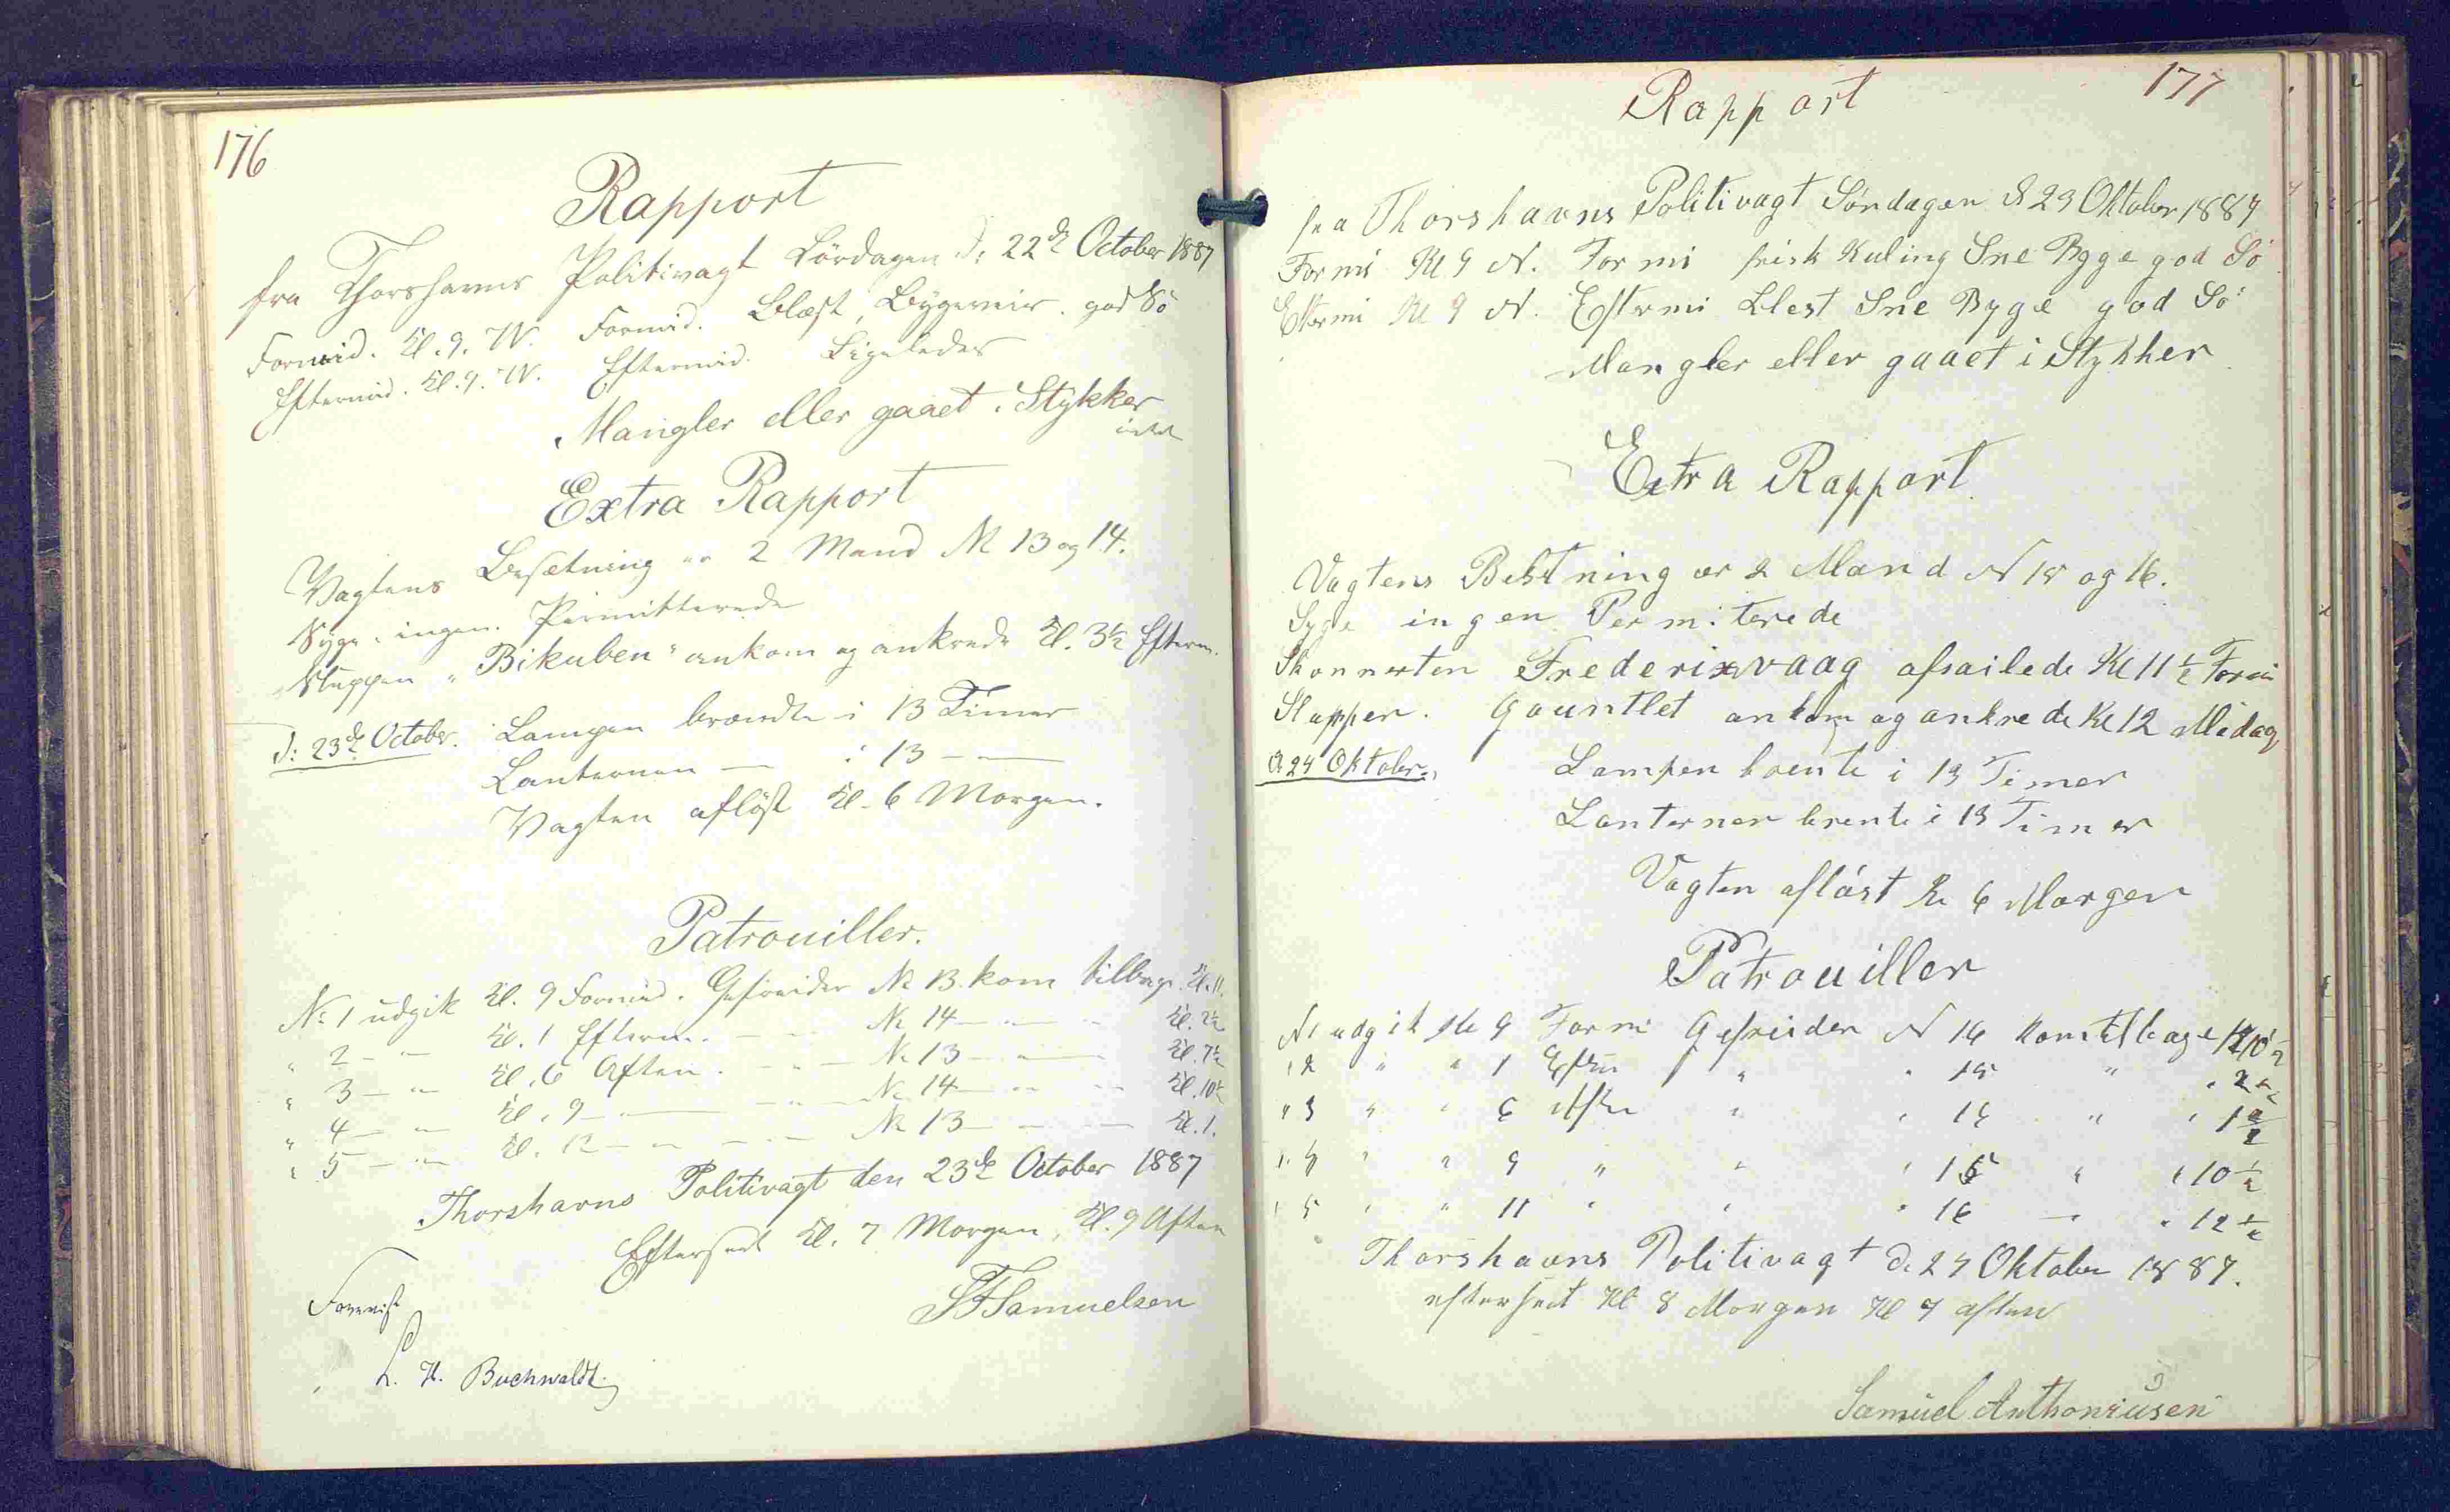 176
Rapport
fra Thorshavns Politivagt Lördagen d: 22de October 1887
Formid. Kl. 9. W. Formid. Blæst, Bygeveir. god Sö
Eftermid. Kl. 9. W. Eftermid. Ligeledes
Mangler eller gaaet i Stykker
intet
Extra Rapport
Vagtens Besætning er 2 Mand No 13 og 14.
Syge: ingen. Permitterede
Sluppen "Bikuben" ankom og ankrede Kl. 3½ Efterm.
d: 23de October. Lampen brændte i 13 Timer
Lanternen — i 13 — —
Vagten aflöst Kl. 6 Morgen.
Patrouiller.
No 1 udgik Kl. 9 Formid. Gefreider No 13. kom tilbage Kl. 11.
" 2 — " Kl. 1 Efterm. — " — No 14 — " — Kl. 2½
" 3 — " Kl. 6 Aften. — " — No 13 — " — Kl. 7½
" 4 — " Kl. 9 — " — No 14 — " — Kl. 10½
" 5 — " Kl. 12 — " — " — No 13 — " — Kl. 1.
Thorshavns Politivagt den 23de October 1887
Efterseet Kl. 7 Morgen, Kl. 9 Aften
SFSamuelsen
Forevist
L. H. Buchwaldt.
177
Rapport
fra Thorshavns Politivagt Söndagen d 23 Oktober 1887
Formi Kl 9 N. Formi frisk Kuling Sne Byge god Sö
Eftermi Kl 9 N. Eftermi Blest Sne Byge god Sö
Mangler eller gaaet i Stykker
Extra Rapport
Vagtens Bestning er 2 Mand N 15 og 16.
Syge ingen Permiterede
Skonnerten Frederixvaag afsailede Kl 11½ Formi
Slupper. Gauntlet ankom og ankrede Kl 12 Midag
d 24 Oktober. Lampen brente i 13 Timer
Lanternen brente i 13 Timer
Vagten aflöst Kl 6 Morgen
Patrouiller
N1 udgik Kl 9 Formi Gefreider N 16 kom tilbage Kl 10½
" 2 " " 1 Eftmi " " 15 " " 2½
" 3 " " 6 Aften " " 16 " "
" 4 " " 9 " " " 15 " " 10½
" 5 " " 11 " " " 16 — " 12½
Thorshavns Politivagt d. 24 Oktober 1887.
efterseet Kl 8 Morgen Kl 7 aften
Samuel Anthoniusen